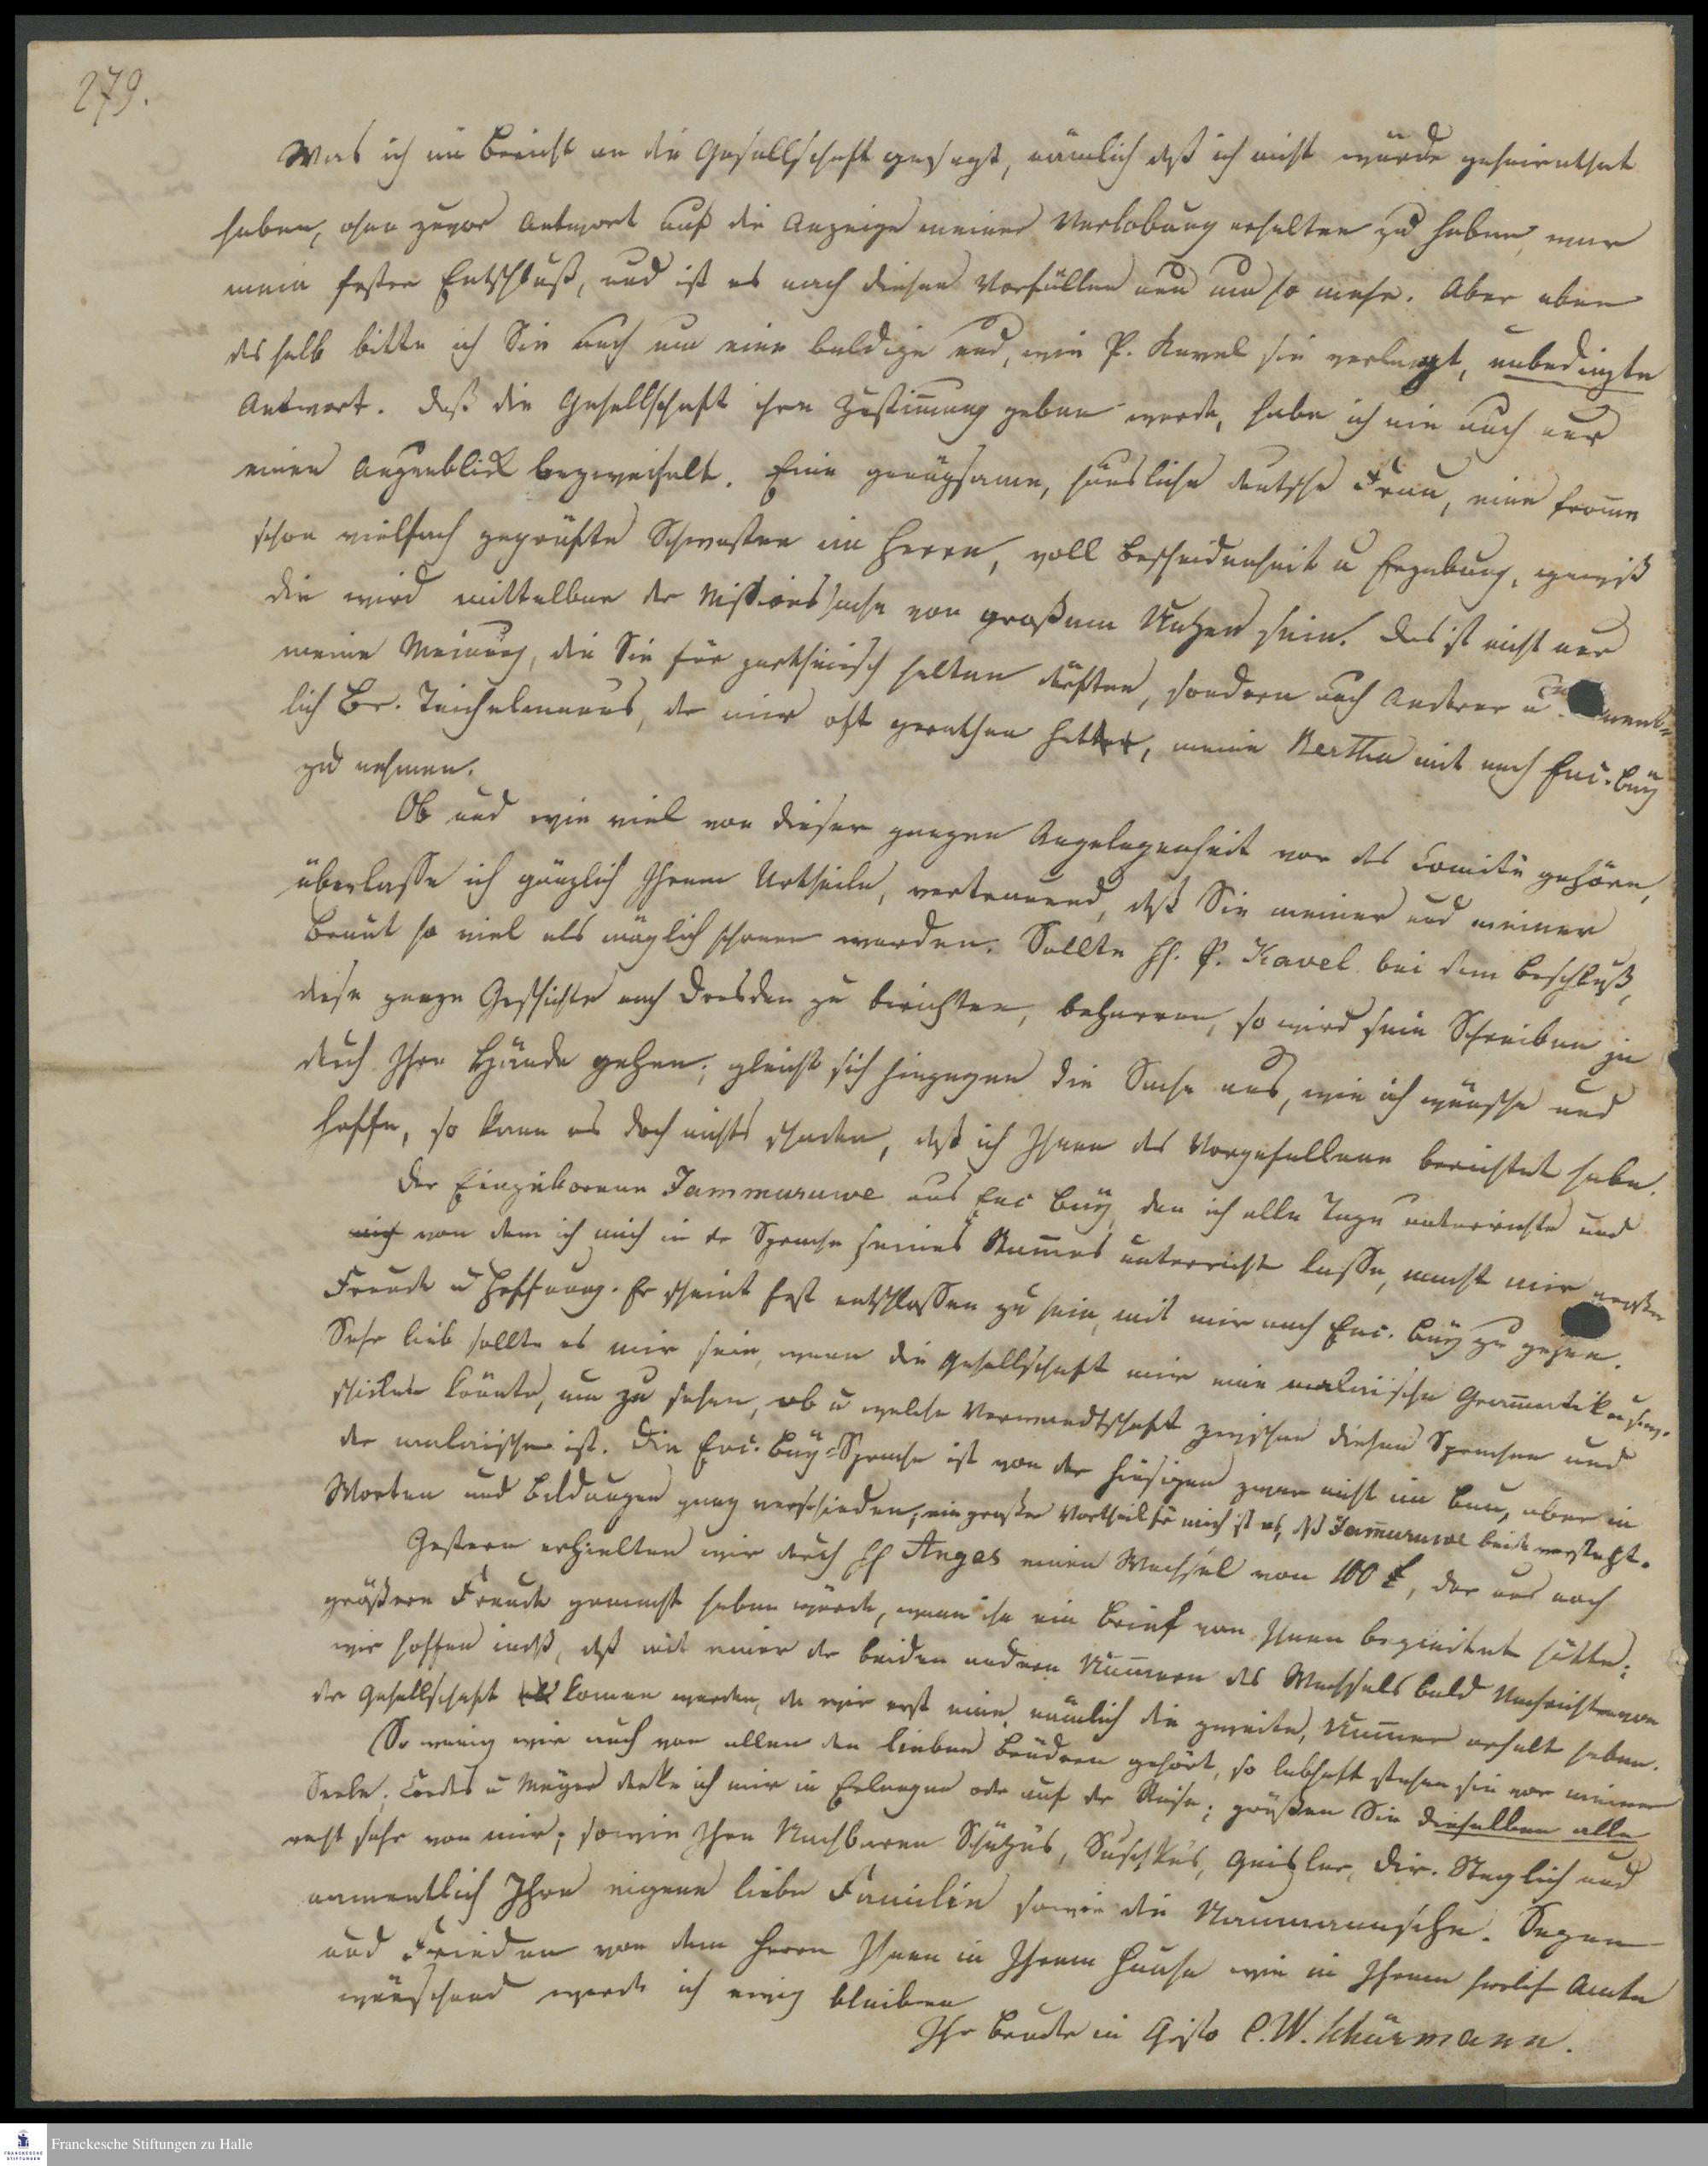 279.
Was ich im Bericht an die Gesellschaft gesagt, nämlich daß ich nicht würde geheirathet
haben, ohne zuvor Antwort auf die Anzeige meiner Verlobung erhalten zu haben, war
mein fester Entschluß, und ist es nach diesen Vorfällen nun um so mehr. Aber eben
deshalb bitte ich Sie auch um eine baldige und, wie P. Kavel sie verlangt, unbedingte
Antwort. Daß die Gesellschaft ihre Zustim̄ung geben werde, habe ich nie auch nur
einen Augenblick bezweifelt. Eine genügsame, häusliche deutsche Frau, eine from̄e
schon vielfach geprüfte Schwester im Herrn, voll Bescheidenheit u Ergebung, gewiß
die wird mittelbar der Missionssache von großem Nutzen sein. Das ist nicht nur
meine Meinung, die Sie für partheiisch halten dürften, sondern auch Anderer u. nament-
lich Br. Teichelmanns, der mir oft gerathen hat, meine Bertha mit nach Enc. Bay
zu nehmen.
Ob und wie viel von dieser ganzen Angelegenheit vor das Comite gehöre,
überlasse ich gänzlich Ihrem Urtheile, vertrauend, daß Sie meiner und meiner
Braut so viel als möglich schonen werden. Sollte H. P. Kavel bei dem Beschluß,
diese ganze Geschichte nach Dresden zu berichten, beharren, so wird sein Schreiben ja
durch Ihre Hände gehen; gleicht sich hingegen die Sache aus, wie ich wünsche und
hoffe, so kann es doch nichts schaden, daß ich Ihnen das Vorgefallene berichtet habe.
Der Eingeborene Jammuruwe aus Enc Bay, den ich alle Tage unterrichte und
von dem ich mich in der Sprache seines Stam̄es unterrichten lasse, macht mir große
Freude u Hoffnung. Er scheint fest entschlossen zu sein, mit mir nach Enc. Bay zu gehen.
Sehr lieb sollte es mir sein, wenn die Gesellschaft mir eine malaische Gram̄atik
schicken könnte, um zu sehen, ob u welche Verwandtschaft zwischen diesen Sprachen und
der malaischen ist. Die Enc. Bay-Sprache ist von der hiesigen zwar nicht im Bau, aber in
Worten und Bildungen ganz verschieden; ein großer Vortheil für mich ist es, daß Jam̄uruwe beide versteht.
Gestern erhielten wir durch H Angas einen Wechsel von 100 £, der uns noch
größere Freude gemacht haben würde, wenn ihn ein Brief von Ihnen begleitet hätte;
wir hoffen indeß, daß mit einer der beiden andern Num̄ern des Wechsels bald Nachrichten von
der Gesellschaft kom̄en werden, da wir erst eine, nämlich die zweite, Num̄er erhalten haben.
So wenig wir auch von allen den lieben Brüdern gehört, so lebhaft stehen sie vor meiner
Seele. Cordes u Meyer denke ich mir in Erlangen oder auf der Reise; grüßen Sie dieselben alle
recht sehr von mir; sowie Ihre Nachbaren Schütz's, Geißler, Dir. Steglich und
namentlich Ihre eigene liebe Familie sowie die Naumannsche. Segen
und Frieden von dem Herrn Ihnen in Ihrem Hause wie in Ihrem Amte
wünschend werde ich ewig bleiben
Ihr Bruder in Christo C.W. Schürmann.
FRANCKESCHE STIFTUNGEN
Franckesche Stiftungen zu Halle